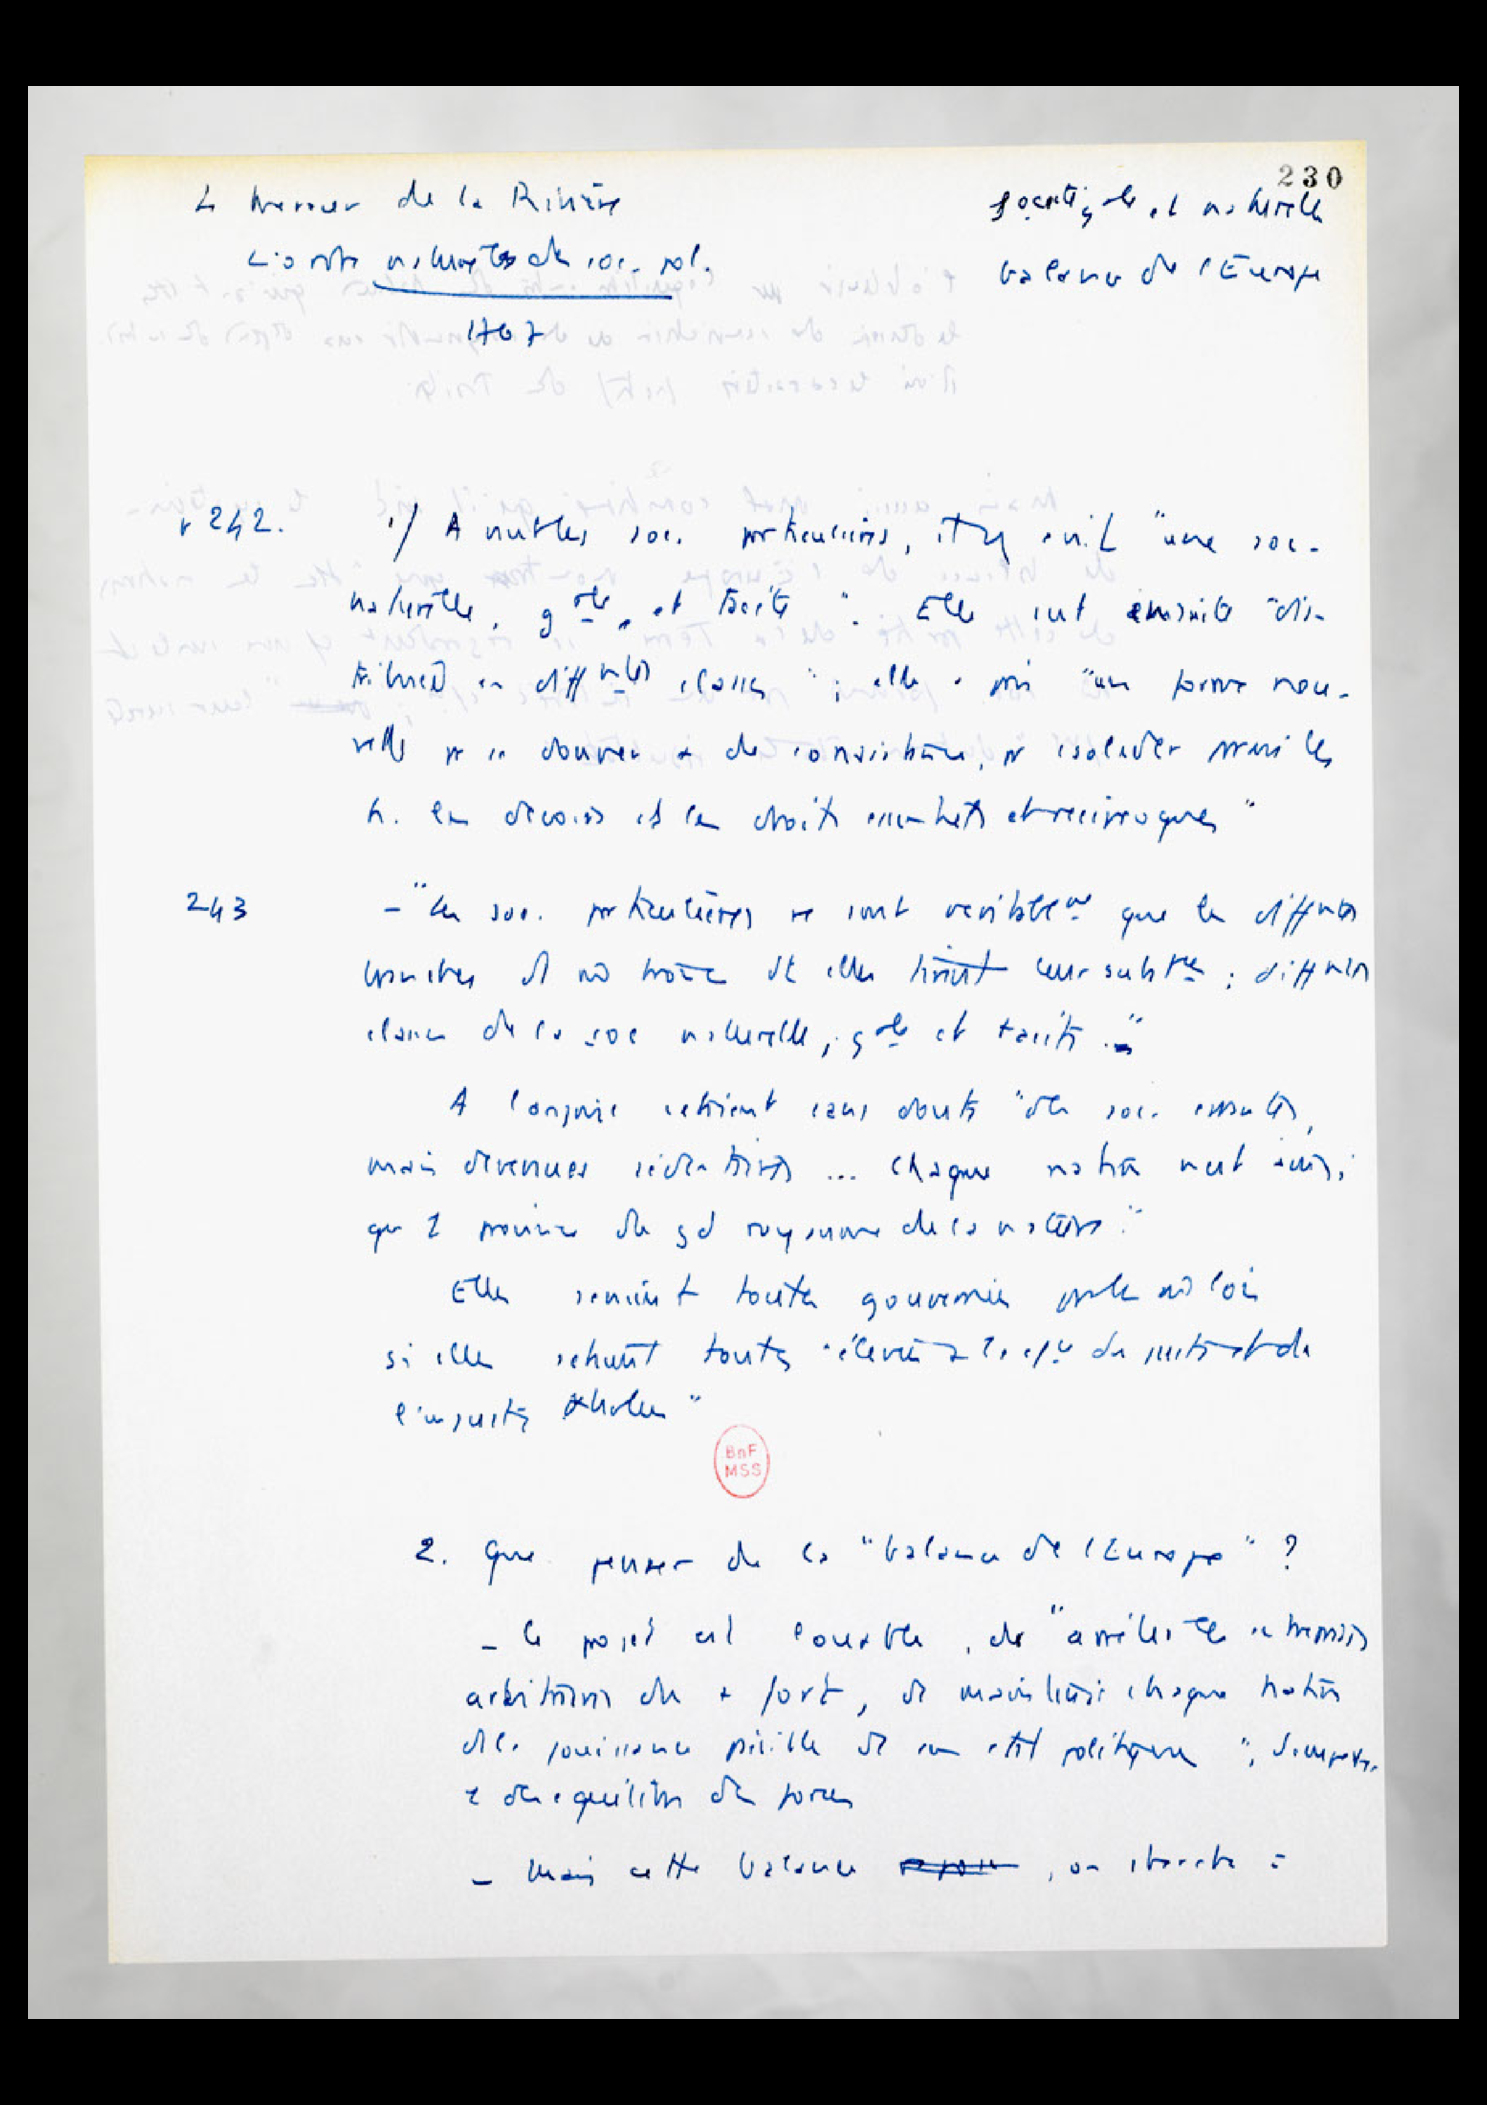 230
Le Mercier de la Rivière
L'ordre naturel des soc. pol.
1767
Société gale et naturelle
balance de l'Europe
p 242. 1/ A nutles soc. particulières, il y avait "une soc.
naturelle, gale, et tacite". Elle s'est ensuite "dis-
tribuée en difftes classes" ; elle a pris "une forme nou-
velle pr se donner + de consistance, pr consolider parmi les
h. les devoirs et les droits essentiels et réciproques"
243 - "les soc. particulières ne sont véritablemt que les difftes
branches d'1 mê tronc dt elles tirent leur substce ; difftes
classes de la soc naturelle, gale et tacite."
A l'origine c'étaient sans doute "des soc.
mais devenues ... Chaque nation n'est ainsi
qu'1 province du gd royaume de la nature."
Elles seraient toutes gouvernées par les mê lois
si elles s'étaient toutes "élevées à la cce du juste et de
l'injuste absolus"
BnF
MSS
2. Que penser de la "balance de l'Europe" ?
- le projet est louable, de "arrêter les entreprises
arbitraires du + fort, de maintenir chaque nation
ds la jouissance paisible de son état politique",
des forces
- Mais cette balance , on cherche à